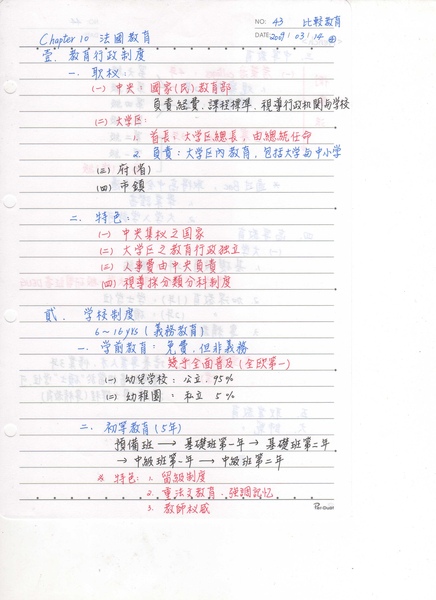 NO: 43 比較教育
DATE 2009 / 03 / 14
Chapter 10 法國教育
壹. 教育行政制度
一. 职权
(一) 中央: 國家(民)教育部
負責經費、課程標準、視導行政机関与学校
(二) 大学區:
1. 首長: 大学區總長, 由總統任命
2. 負責: 大学區內教育, 包括大学与中小学
(三) 府(省)
(四) 市鎮
二. 特色:
(一) 中央集权之国家
(二) 大学區之教育行政独立
(三) 人事費由中央負責
(四) 視導採分類分科制度
貳. 学校制度
6~16 yrs (義務教育)
一. 学前教育: 免費, 但非義務
幾乎全面普及 (全欧第一)
(一) 幼兒学校: 公立 95%
(二) 幼稚園: 私立 5%
二. 初等教育 (5年)
預備班 → 基礎班第一年 → 基礎班第二年
→ 中級班第一年 → 中級班第二年
※ 特色: 1. 留級制度
2. 重法文教育, 強調記忆
3. 教師权威